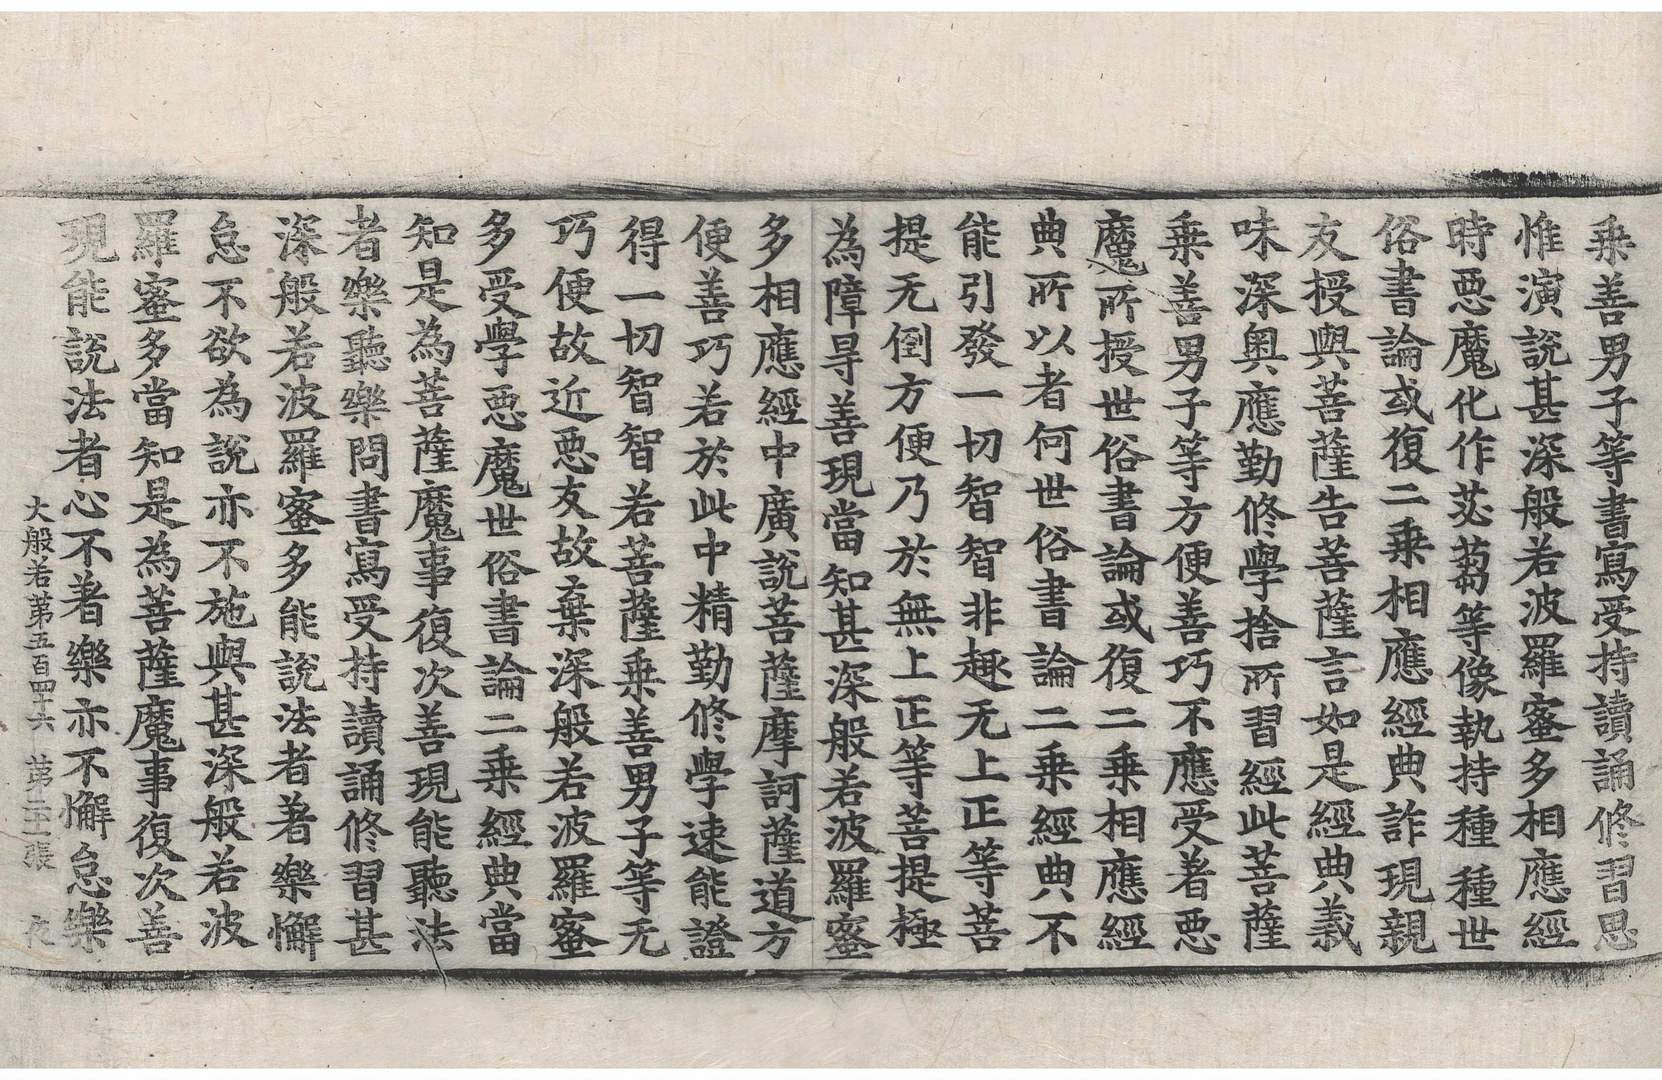 乗善男子等書寫受持讀誦修習思
惟演說甚深般若波羅蜜多相應經
時惡魔化作苾蒭等像執持種種世
俗書論或復二乗相應經典詐現親
友授與菩薩告菩薩言如是經典義
味深奧應勤修學捨所習經此菩薩
乗善男子等方便善巧不應受著惡
魔所授世俗書論或復二乗相應經
典所以者何世俗書論二乗經典不
能引發一切智智非趣无上正等菩
提无倒方便乃於無上正等菩提極
為障㝵善現當知甚深般若波羅蜜
多相應經中廣說菩薩摩訶薩道方
便善巧若於此中精勤修學速能證
得一切智智若菩薩乗善男子等无
巧便故近惡友故棄深般若波羅蜜
多受學惡魔世俗書論二乗經典當
知是為菩薩魔事復次善現能聽法
者樂聽樂問書寫受持讀誦修習甚
深般若波羅蜜多能說法者著樂懈
怠不欲為說亦不施與甚深般若波
羅蜜多當知是為菩薩魔事復次善
現能說法者心不著樂亦不懈怠樂
大般若第五百四十六 第二十二張 夜